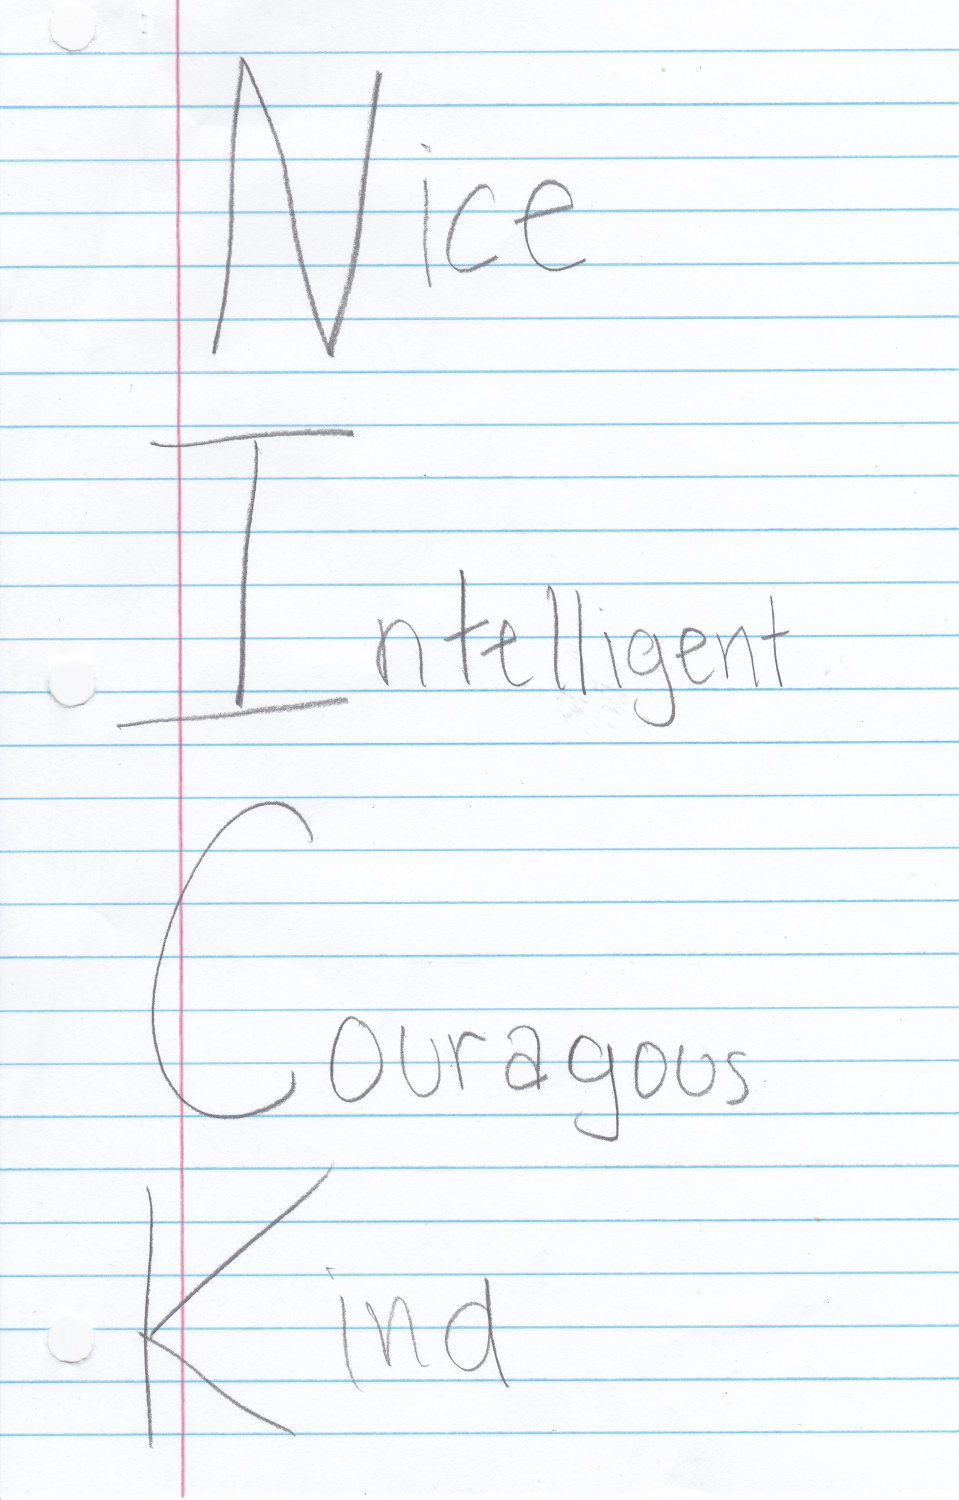 Nice
Intelligent
Couragous
Kind